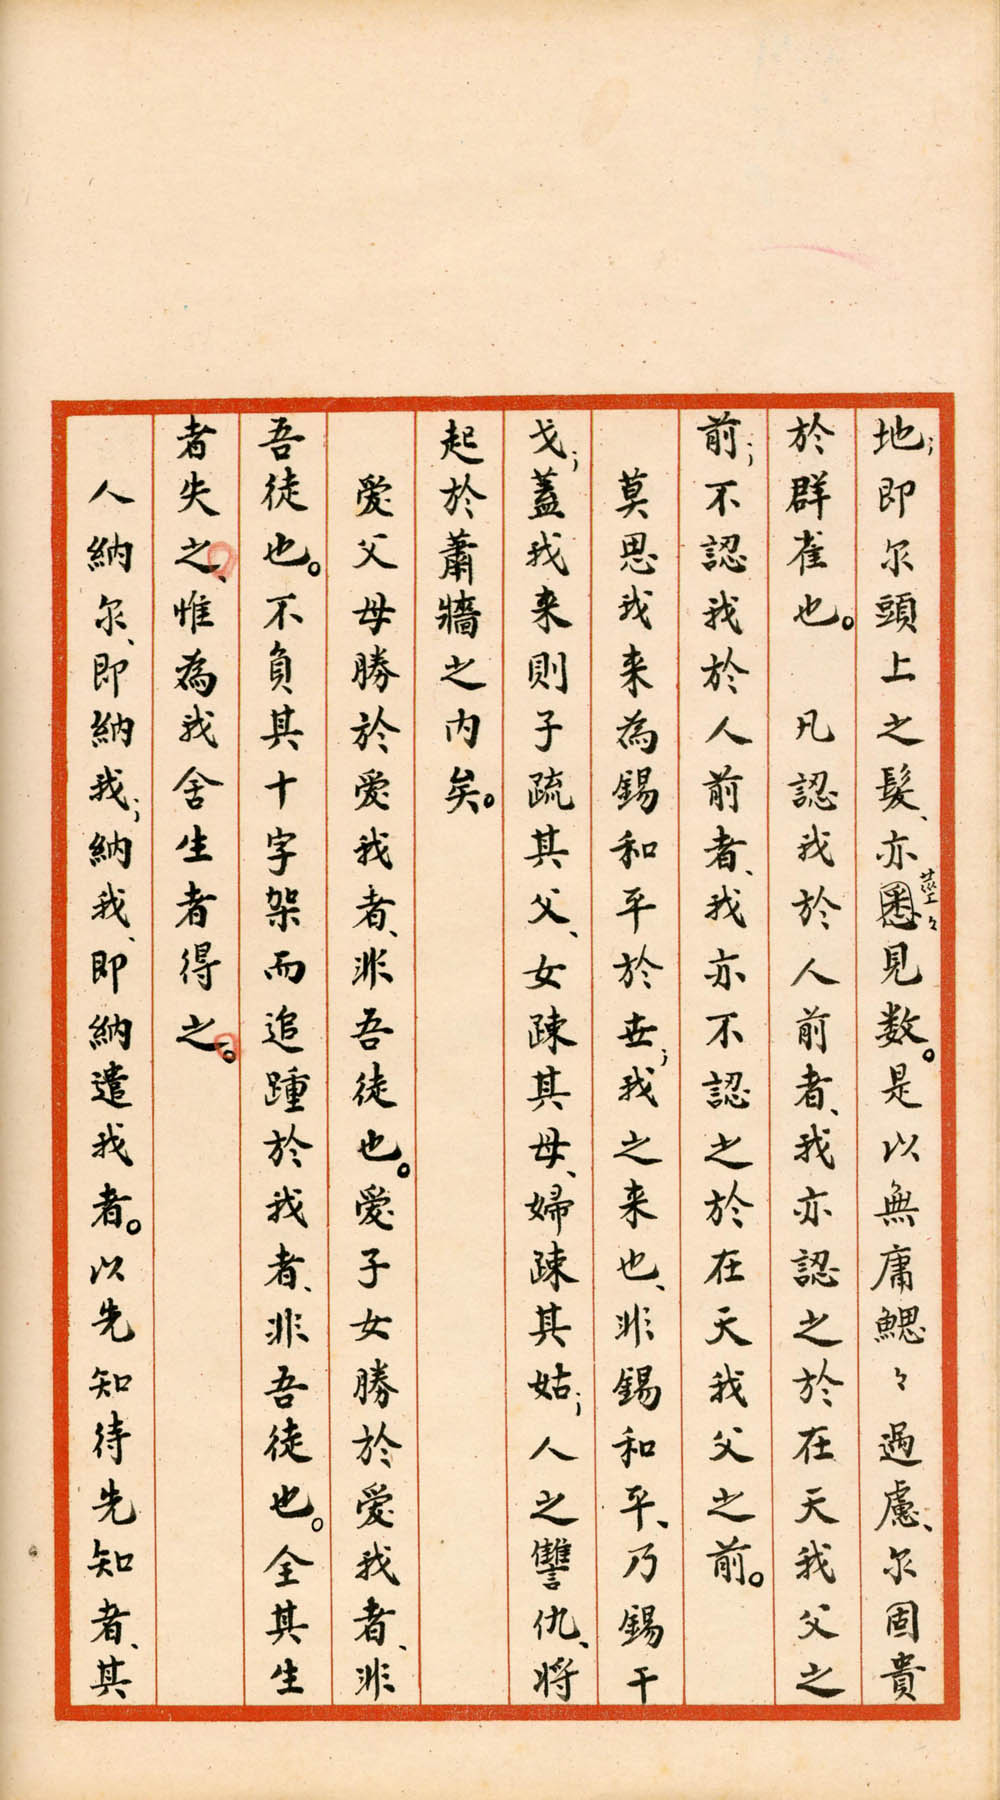 地；即尔頭上之髮、亦悉見数。是以無庸鰓々過慮、尔固貴
莖々
於群雀也。　凡認我於人前者、我亦認之於在天我父之
前；不認我於人前者、我亦不認之於在天我父之前。
莫思我来為錫和平於世；我之来也、非錫和平、乃錫干
戈；蓋我来則子疏其父、女踈其母、婦踈其姑；人之讐仇、将
起於蕭牆之内矣。
愛父母勝於愛我者、非吾徒也。愛子女勝於愛我者、非
吾徒也。不負其十字架而追踵於我者、非吾徒也。全其生
者失之、惟為我舍生者得之。
人納尔、即納我；納我、即納遣我者。以先知待先知者、其